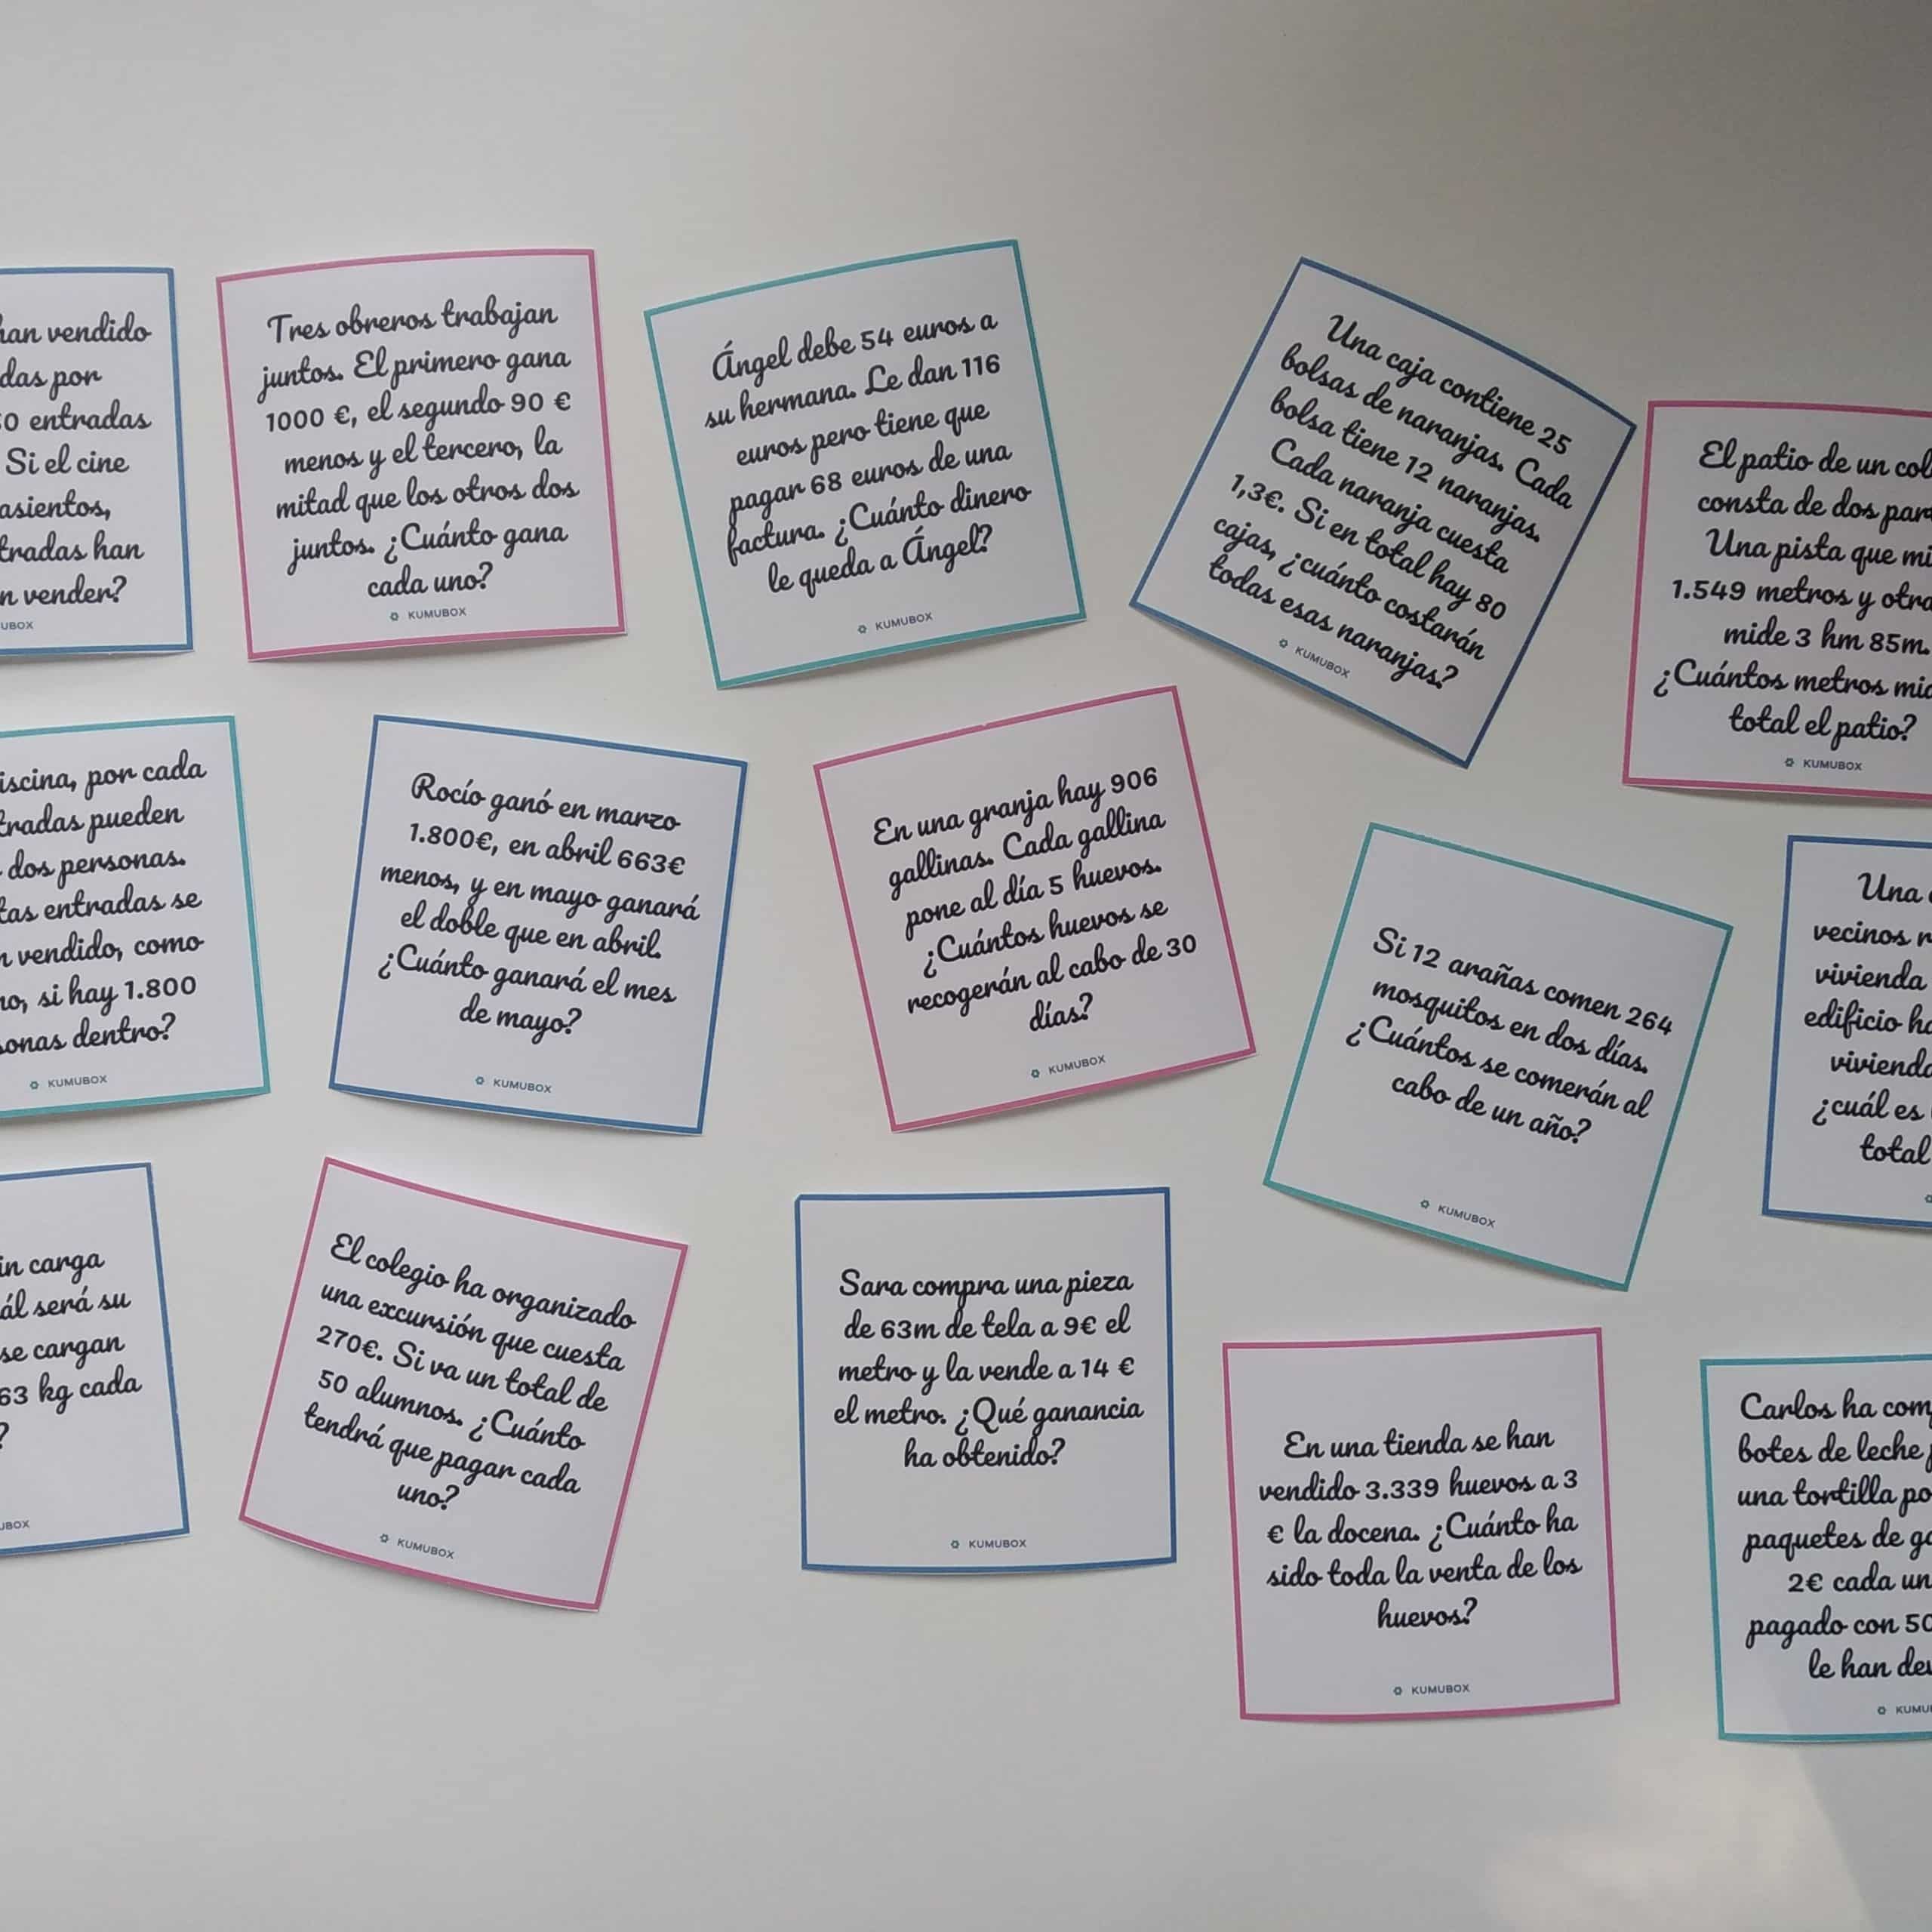 han vendido
das por
entradas
Si el cine
asientos,
tradas han
n vender?
UBOX
Tres obreros trabajan
juntos. El primero gana
1000 €, el segundo 90 €
menos y el tercero, la
mitad que los otros dos
juntos. ¿Cuánto gana
cada uno?
KUMUBOX
Ángel debe 54 euros a
su hermana. Le dan 116
euros pero tiene que
pagar 68 euros de una
factura. ¿Cuánto dinero
le queda a Ángel?
KUMUBOX
Una caja contiene 25
bolsas de naranjas. Cada
bolsa tiene 12 naranjas.
Cada naranja cuesta
1,3€. Si en total hay 80
cajas, ¿cuánto costarán
todas esas naranjas?
KUMUBOX
El patio de un col
consta de dos par
Una pista que mi
1.549 metros y otra
mide 3 hm 85m.
¿Cuántos metros mid
total el patio?
KUMUBOX
iscina, por cada
tradas pueden
dos personas.
tas entradas se
n vendido, como
o, si hay 1.800
sonas dentro?
KUMUBOX
Rocío ganó en marzo
1.800€, en abril 663€
menos, y en mayo ganará
el doble que en abril.
¿Cuánto ganará el mes
de mayo?
KUMUBOX
En una granja hay 906
gallinas. Cada gallina
pone al día 5 huevos.
¿Cuántos huevos se
recogerán al cabo de 30
días?
KUMUBOX
Si 12 arañas comen 264
mosquitos en dos días.
¿Cuántos se comerán al
cabo de un año?
KUMUBOX
Una
vecinos r
vivienda
edificio ha
vivienda
¿cuál es
total
in carga
ál será su
se cargan
63 kg cada
?
UBOX
El colegio ha organizado
una excursión que cuesta
270€. Si va un total de
50 alumnos. ¿Cuánto
tendrá que pagar cada
uno?
KUMUBOX
Sara compra una pieza
de 63m de tela a 9€ el
metro y la vende a 14 €
el metro. ¿Qué ganancia
ha obtenido?
KUMUBOX
En una tienda se han
vendido 3.339 huevos a 3
€ la docena. ¿Cuánto ha
sido toda la venta de los
huevos?
KUMUBOX
Carlos ha com
botes de leche
una tortilla po
paquetes de ga
2€ cada un
pagado con 50
le han dev
KUMU